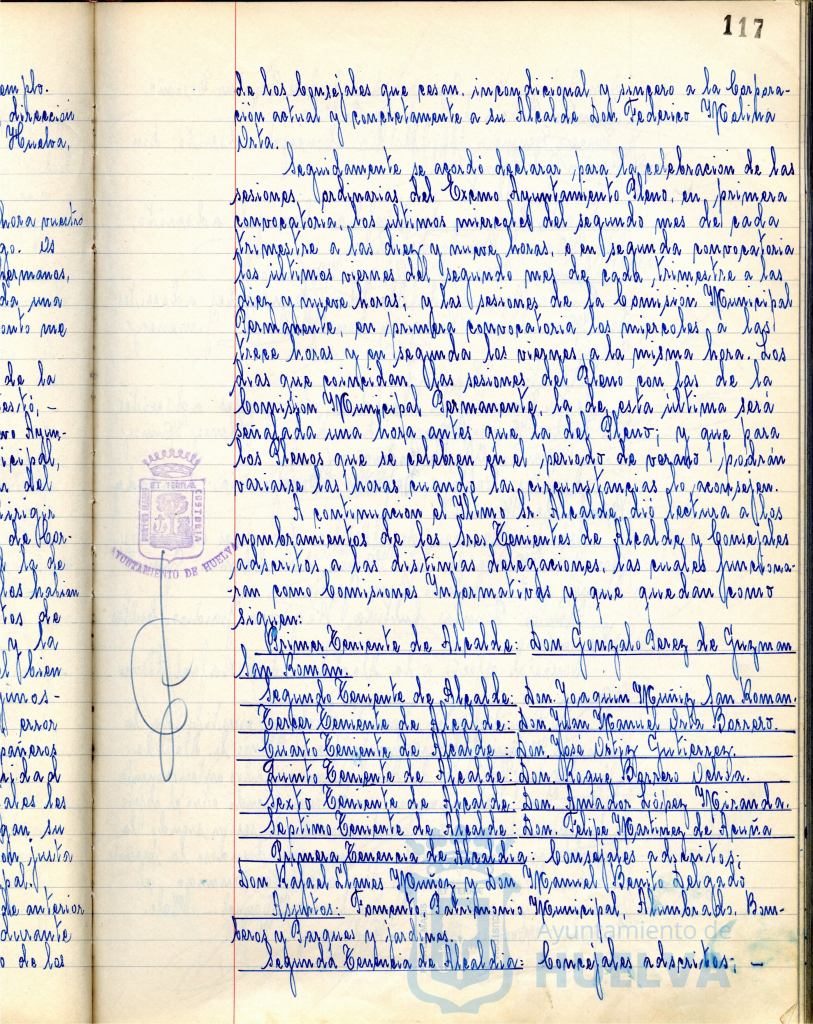 117
emplo.
dirección
Huelva,
hora vuestro
go. Os
hermanos,
da una
onto me
de la
estó, -
vo Ayun-
icipal,
n del
irigir
de Cor-
la de
los habian
tos de
y la
al bien
junos-
error
pañeros
ridad
ales les
gan su
on justa
pal.
de anterior
durante
o de los
de los Consejales que cesan, incondicional y sincero a la Corpora-
ción actual y concretamente a su Alcalde Don Federico Molina
Orta.
Seguidamente se acordó declarar, para la celebracion de las
sesiones ordinarias del Excmo Ayuntamiento Pleno, en primera
convocatoria los ultimos miercoles del segundo mes de cada
trimestre a las diez y nueve horas, o en segunda convocatoria
los ultimos viernes del segundo mes de cada trimestre a las
diez y nueve horas; y las sesiones de la Comision Municipal
Permanente, en primera convocatoria los miercoles a las
trece horas y en segunda los viernes a la misma hora. Los
dias que coincidan las sesiones del Pleno con las de la
Comision Municipal Permanente, la de esta última será
señalada una hora antes que la del Pleno; y que para
los Plenos que se celebren en el periodo de verano, podrán
variarse las horas cuando las circunstancias lo aconsejen.
A continuacion el Iltmo Sr. Alcalde dió lectura a los
nombramientos de los Sres Tenientes de Alcalde y Consejales
adscritos a las distintas delegaciones, las cuales funciona-
ran como Comisiones Informativas y que quedan como
siguen:
Primer Teniente de Alcalde: Don Gonzalo Perez de Guzman
San Román.
Segundo Teniente de Alcalde: Don Joaquin Muñiz San Roman.
Tercer Teniente de Alcalde: Don Juan Manuel Orta Borrero.
Cuarto Teniente de Alcalde: Don José Ortiz Gutierrez.
Quinto Teniente de Alcalde: Don Roque Barrero Ochoa.
Sexto Teniente de Alcalde: Don Amador López Miranda.
Septimo Teniente de Alcalde: Don Felipe Martinez de Acuña
Primera Tenencia de Alcaldia: Consejales adscritos;
Don Rafael Llanes Muñoz y Don Manuel Benito Delgado
Asuntos: Fomento, Patrimonio Municipal, Alumbrado, Bom-
beros y Parques y jardines.
Segunda Tenencia de Alcaldia: Concejales adscritos; -
PORTUS MARIS
ET TERRAE
CUSTODIA
AYUNTAMIENTO DE HUELVA
Ayuntamiento de
HUELVA